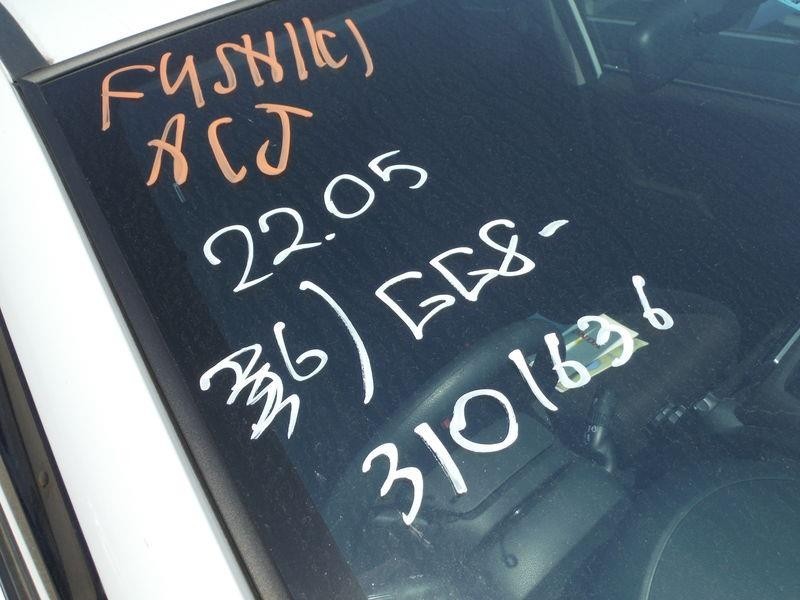 FUSHIKI
ACJ
22.05
36) GG8-
3101636